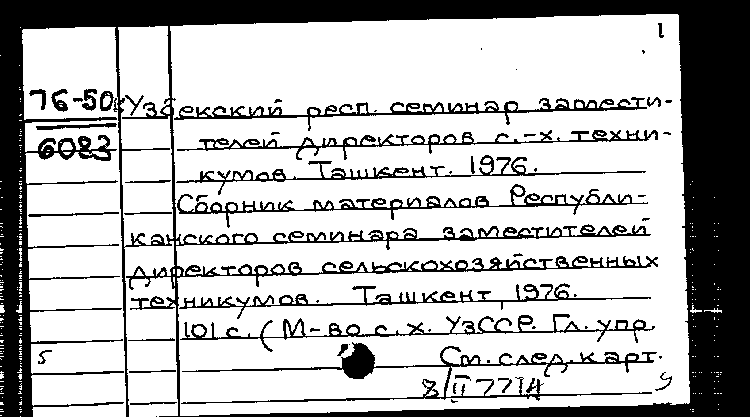 1
76-50к Узбекский респ. семинар замести-
6083 телей директоров с.-х. техни-
кумов. Ташкент. 1976.
Сборник материалов Республи-
канского семинара заместителей
директоров сельскохозяйственных
техникумов. Ташкент, 1976.
101 с. (М-во с.х. УзССР. Гл. упр.
5 См. след. карт.
8/II 77